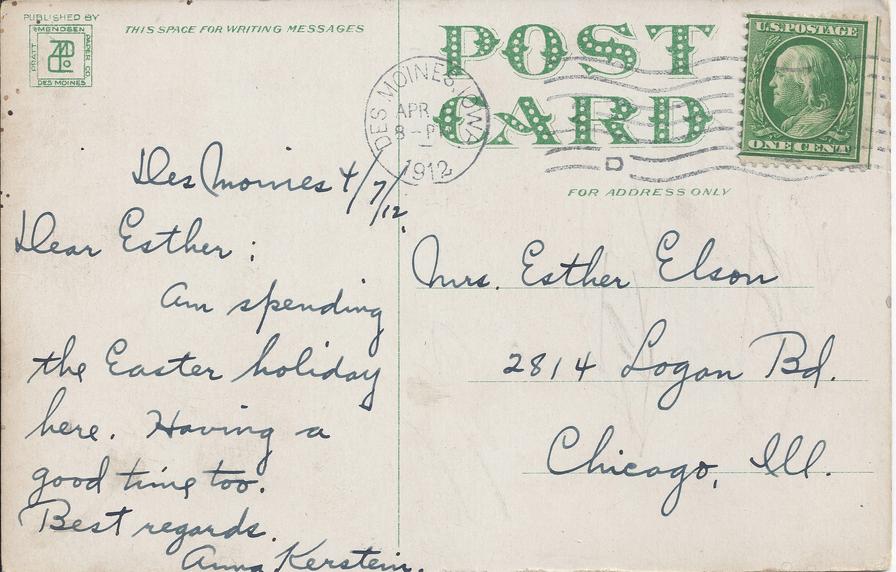 PUBLISHED BY
AMUNDSEN
PRATT
PAPER CO
DES MOINES
THIS SPACE FOR WRITING MESSAGES
POST
CARD
DES MOINES, IOWA
APR
8-P
1912
D
U.S. POSTAGE
ONE CENT
FOR ADDRESS ONLY
Des Moines 4/7/12,
Dear Esther:
Am spending
the Easter holiday
here. Having a
good time too.
Best regards.
Anna Kerstein.
Mrs. Esther Elson
2814 Logan Bd.
Chicago, Ill.